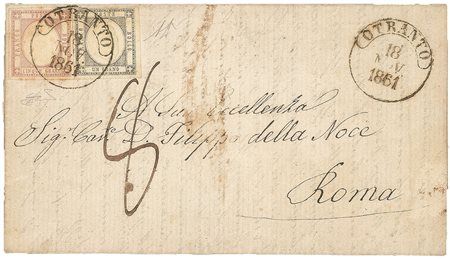 OTRANTO
18
NOV
1861
OTRANTO
18
NOV
1861
BOLLO
UN GRANO
8
A Sua Eccellenza
Sig.r Cav.e D. Filippo della Noce
Roma